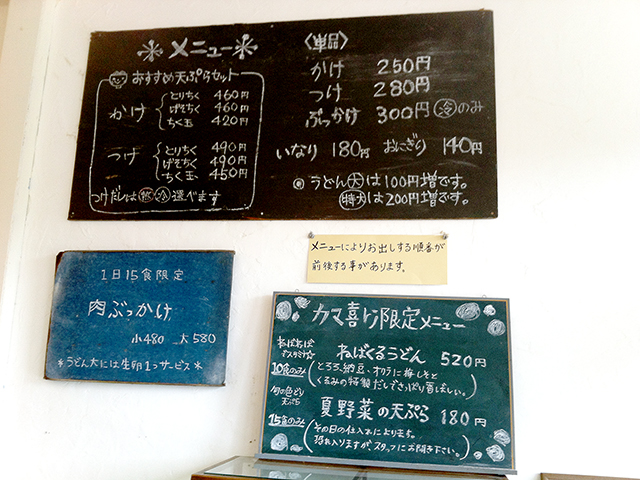 メニュー
おすすめ天ぷらセット
かけ
とりちく 460円
げそちく 460円
ちく玉 420円
つけ
とりちく 490円
げそちく 490円
ちく玉 450円
つけだしは 冷 選べます
〈単品〉
かけ 250円
つけ 280円
ぶっかけ 300円 冷のみ
いなり 180円 おにぎり 140円
うどん大は100円増です。
特大は200円増です。
メニューによりお出しする順番が
前後する事があります。
1日15食限定
肉ぶっかけ
小480 大580
*うどん大には生卵1つサービス*
カマ喜ri限定メニュー
ねばねば
オススメ☆
10食のみ
ねばくるうどん 520円
とろろ、納豆、オクラに梅しそと
くるみの特製だしでさっぱり香ばしい。
旬の色どり
天ぷら
15食のみ
夏野菜の天ぷら 180円
その日の仕入れによります。
スタッフにお聞き下さい。